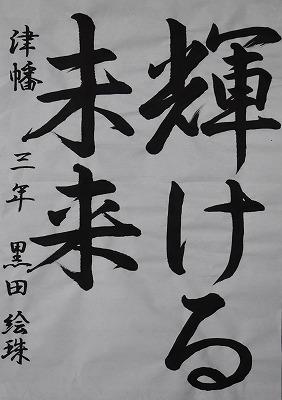 輝ける
未来
津幡 三年 黒田絵珠